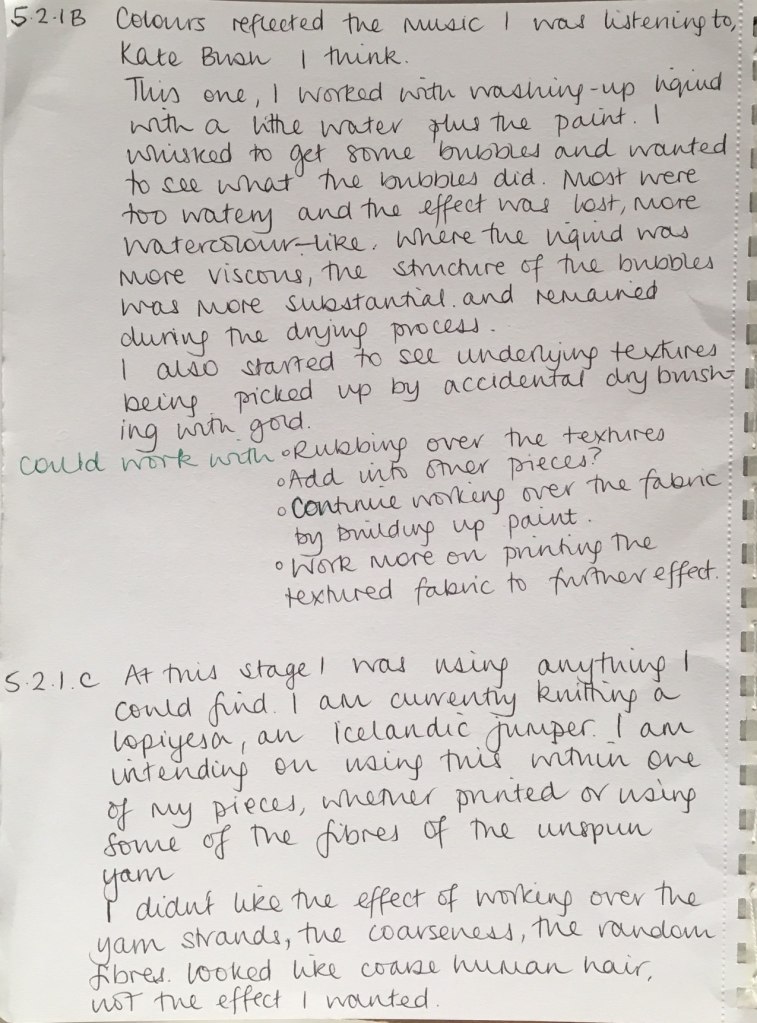 5.2.1B Colours reflected the music I was listening to,
Kate Bush I think.
This one, I worked with washing-up liquid
with a little water plus the paint. I
whisked to get some bubbles and wanted
to see what the bubbles did. Most were
too watery and the effect was lost, more
watercolour-like. Where the liquid was
more viscous, the structure of the bubbles
was more substantial and remained
during the drying process.
I also started to see underlying textures
being picked up by accidental dry brush-
ing with gold.
could work with ∘ Rubbing over the textures
∘ Add into other pieces?
∘ Continue working over the fabric
by building up paint.
∘ Work more on printing the
textured fabric to further effect.
5.2.1.C At this stage I was using anything I
could find. I am currently knitting a
lopiyesa, an Icelandic jumper. I am
intending on using this within one
of my pieces, whether printed or using
some of the fibres of the unspun
yarn
I didn't like the effect of working over the
yarn strands, the coarseness, the random
fibres. looked like coarse human hair,
not the effect I wanted.